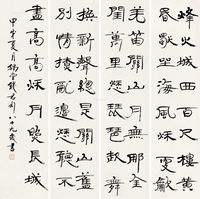 烽火城西百尺樓黄
昏獨上海風秋更吹
羌笛關山月無那金
閨萬里愁琵琶起舞
換新聲總是關山舊
別情撩亂邊愁聽不
盡高高秋月照長城
甲申夏月 八十九叟書